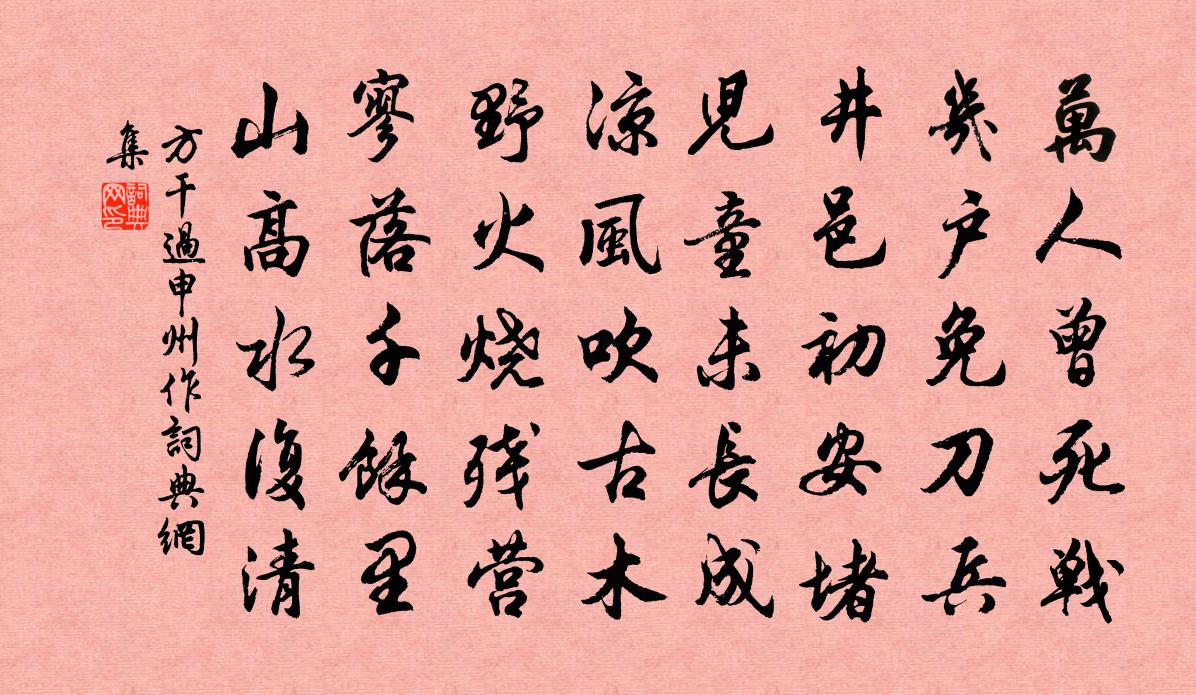 萬人曾死戰
幾户免刀兵
井邑初安堵
児童未長成
涼風吹古木
野火燒残营
寥落千餘里
山高水復清
方干過申州作詞典網
集
詞典网印